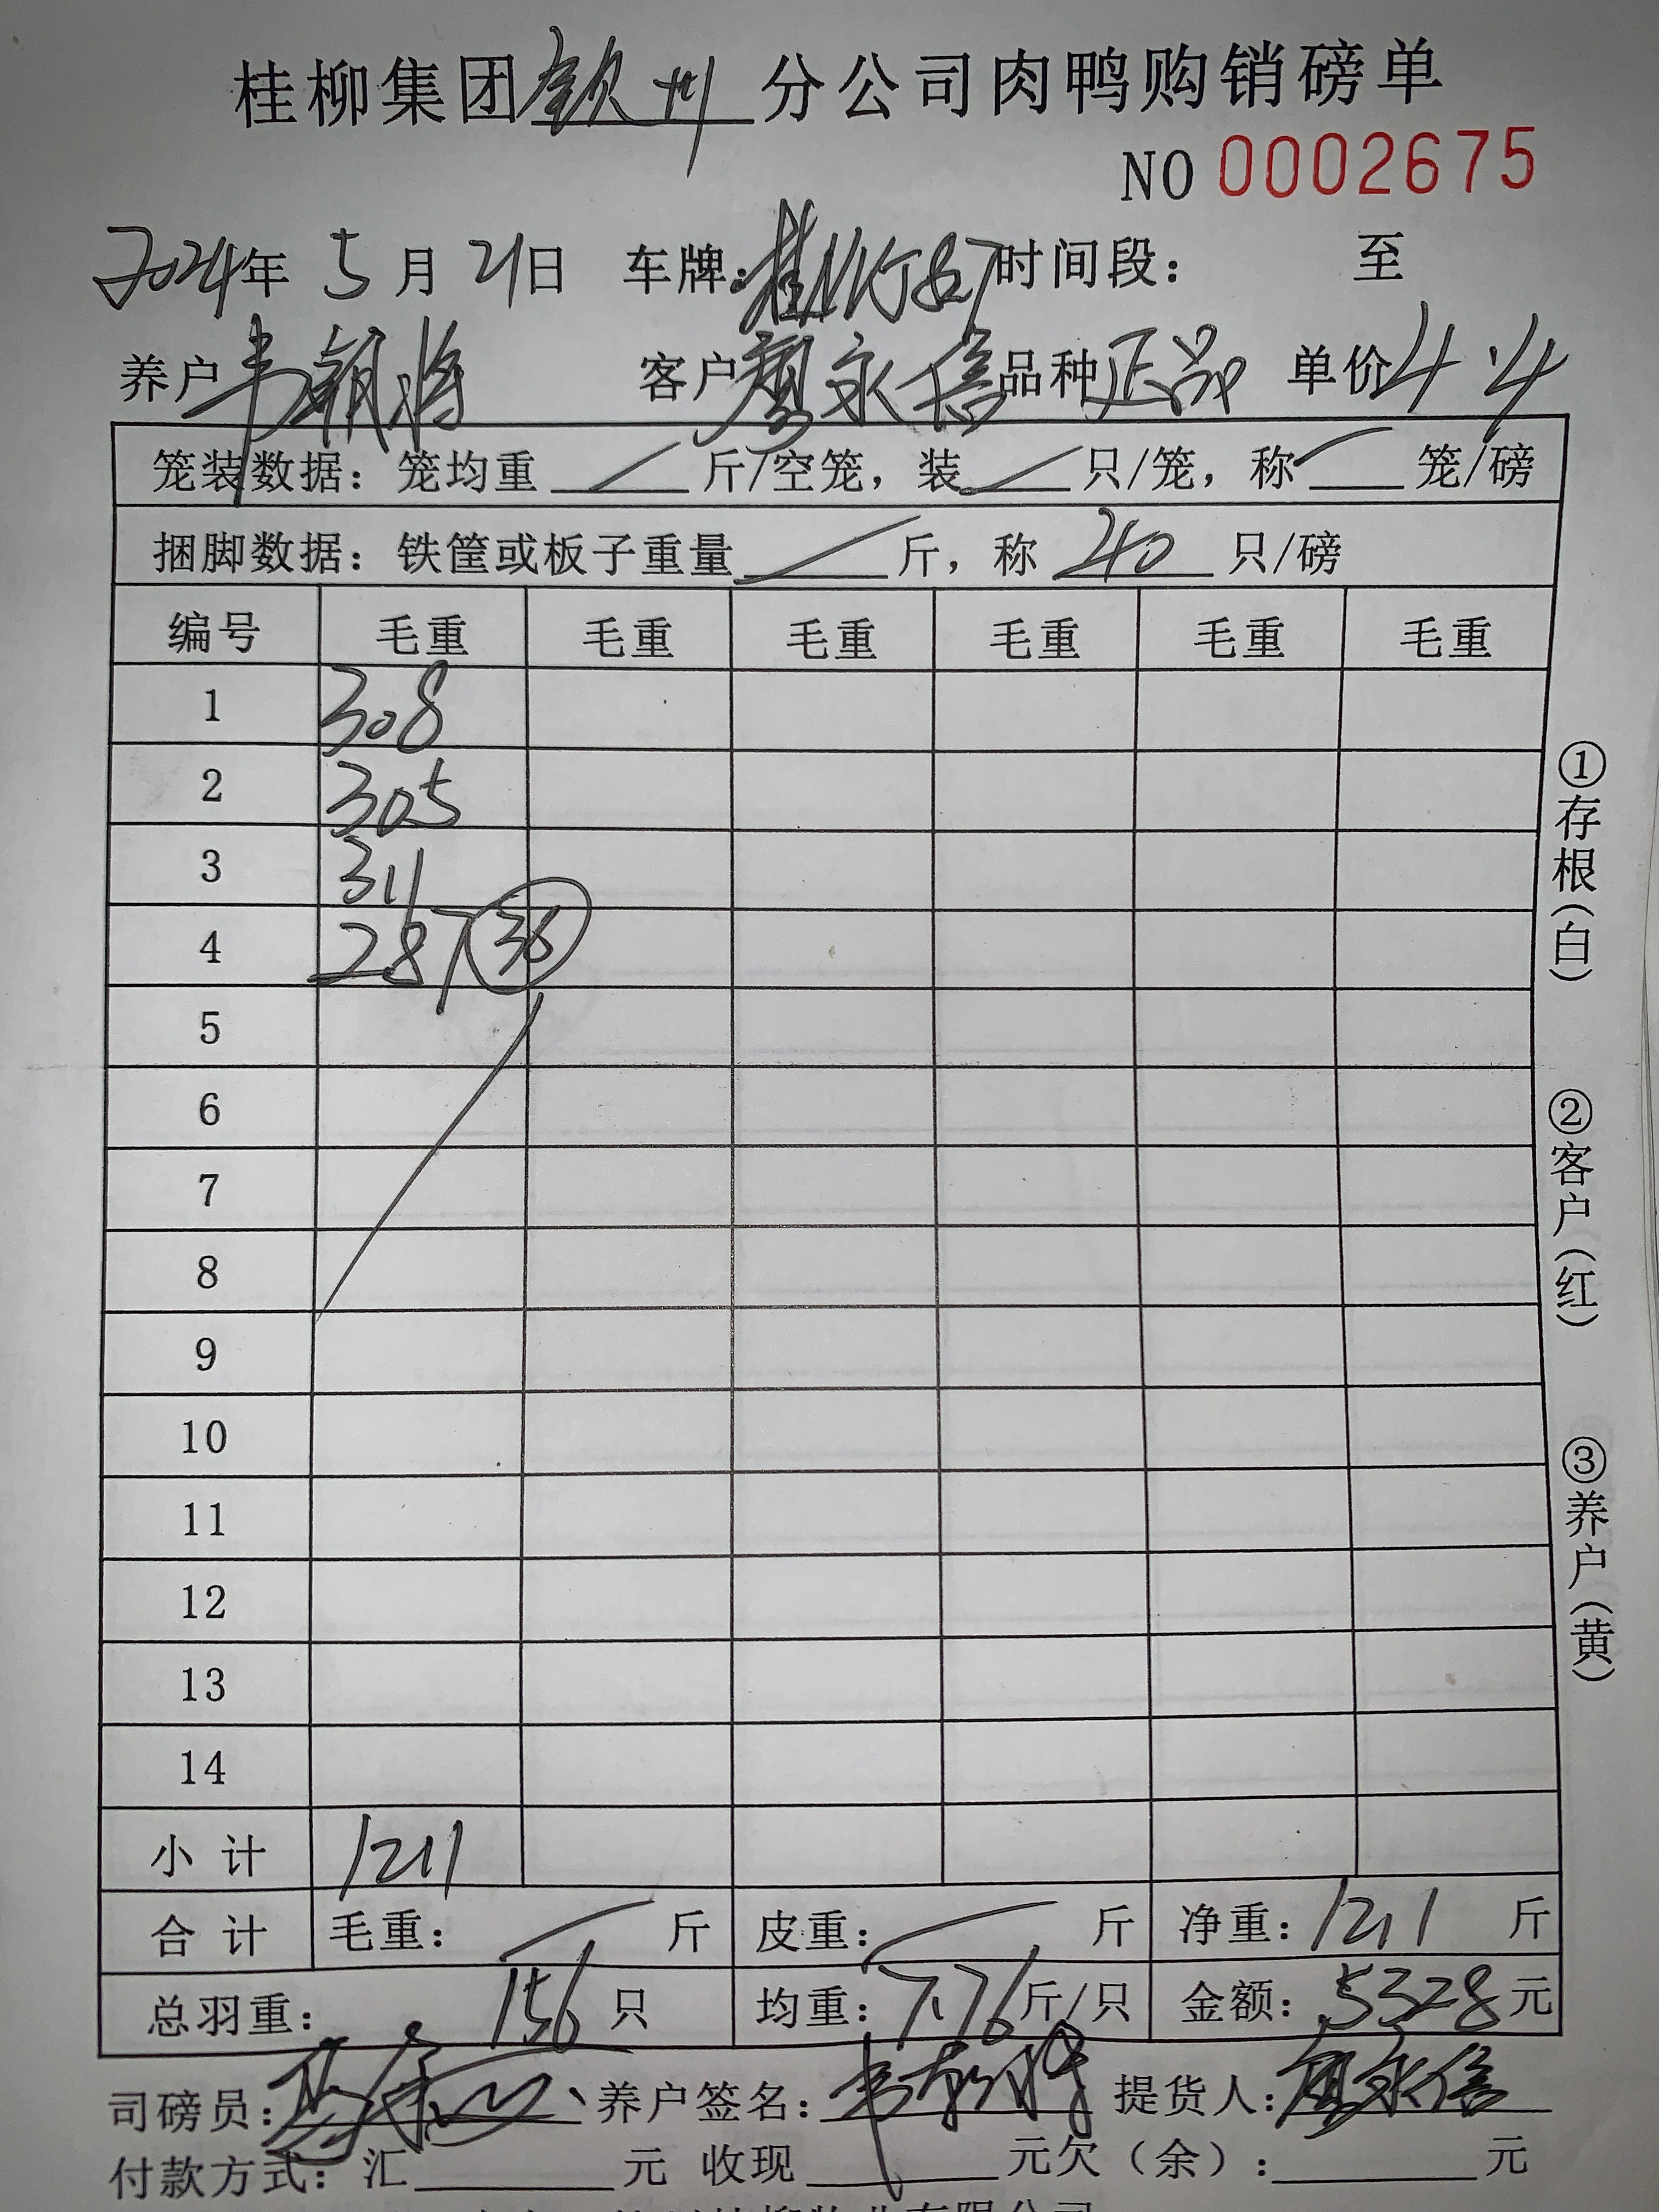 桂柳集团钦州分公司肉鸭购销磅单
NO 0002675
2024年 5月 21日 车牌: 桂N 时间段: 至
养户 韦朝将 客户 廖永信 品种 正品 单价 4.4
笼装数据: 笼均重 / 斤/空笼, 装 / 只/笼, 称 / 笼/磅
捆脚数据: 铁筐或板子重量 / 斤, 称 40 只/磅
编号 毛重 毛重 毛重 毛重 毛重 毛重
1 308
2 305
3 311
4 287 36
5
6
7
8
9
10
11
12
13
14
小计 1211
合计 毛重: / 斤 皮重: / 斤 净重: 1211 斤
总羽重: 156 只 均重: 7.76 斤/只 金额: 5328 元
司磅员: 养户签名: 韦朝将 提货人: 廖永信
付款方式: 汇 元 收现 元欠(余): 元
①存根(白)
②客户(红)
③养户(黄)